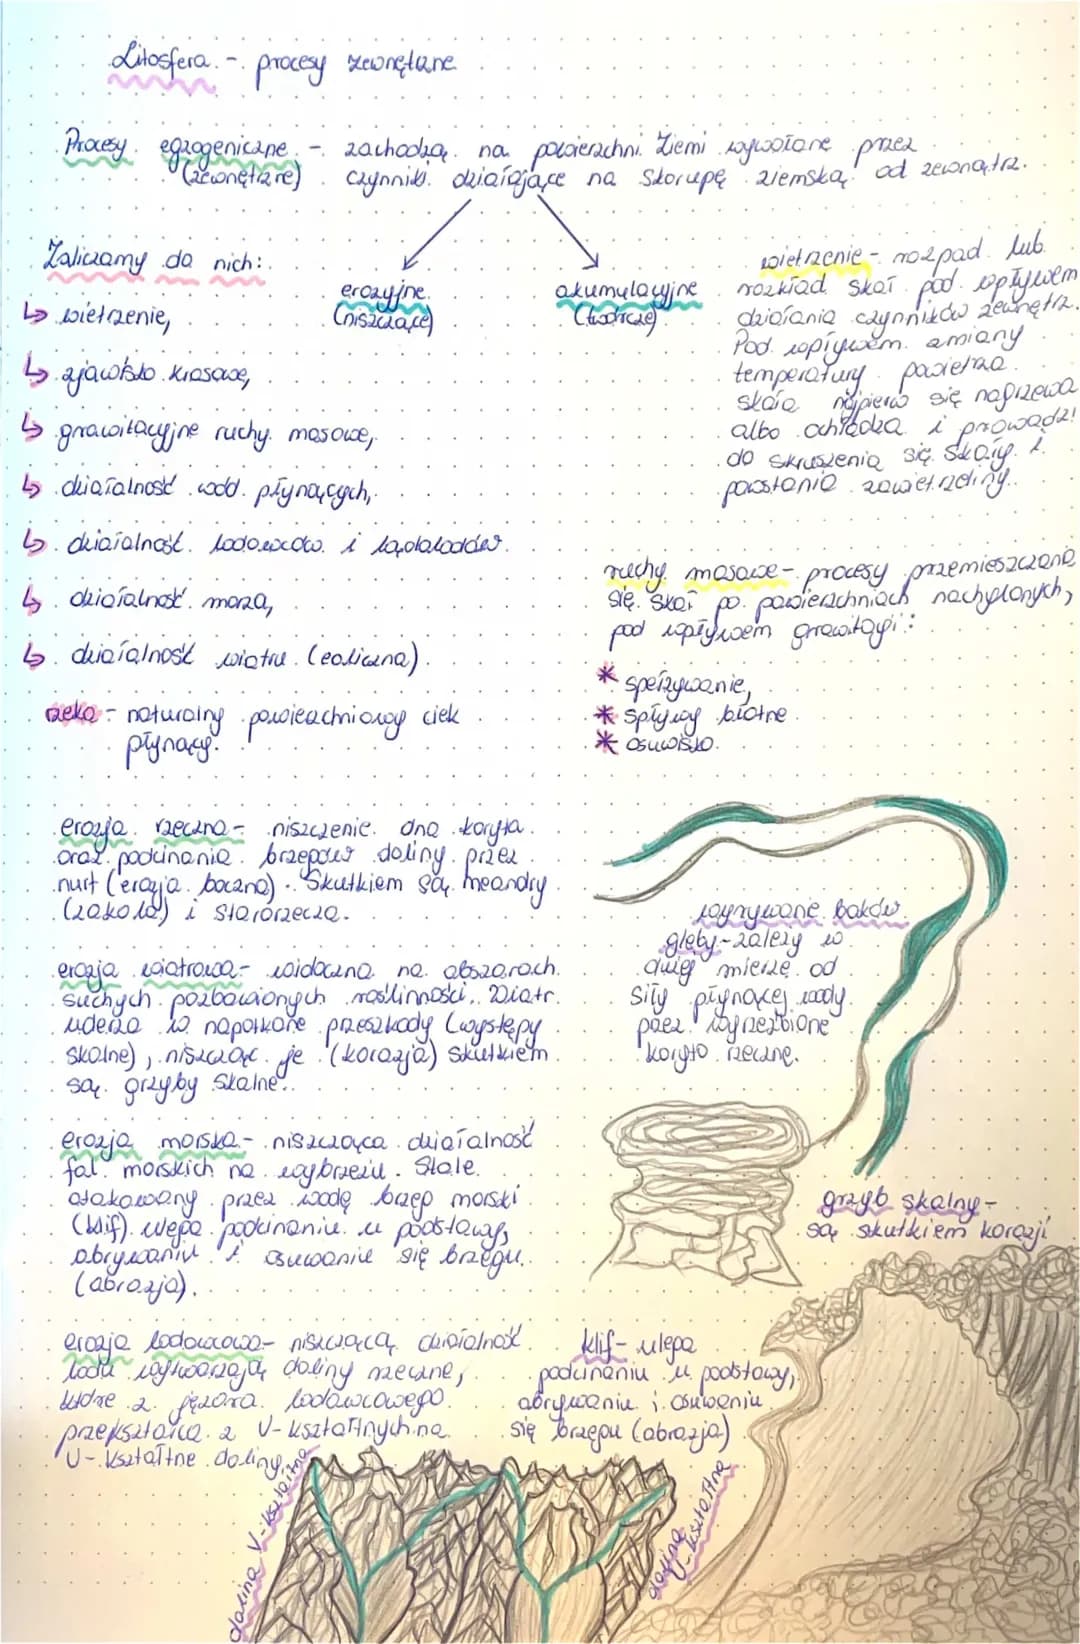 Litosfera - procesy zewnętzne
Procesy egzogeniczne - zachodzą na powierzchni Ziemi wywołane przez
(zewnętrzne) czynniki działające na skorupę ziemską od zewnątrz.
Zaliczamy do nich:
↳ wietrzenie,
↳ zjawisko krasowe,
↳ grawitacyjne ruchy masowe,
↳ działalność wód płynących,
↳ działalność lodowców i lądolodów
↳ działalność morza,
↳ działalność wiatru (eoliczna)
erozyjne
(niszczące)
akumulacyjne
(twórcze)
wietrzenie - rozpad lub
rozkład skał pod wpływem
działania czynników zewnętrz.
Pod wpływem zmiany
temperatury powietrza
skała najpierw się nagrzewa
albo ochładza i prowadzi
do skruszenia się skały i
powstania zawietrzeliny.
ruchy masowe - procesy przemieszczania
się skał po powierzchniach nachylonych,
pod wpływem grawitacji:
* spełzywanie,
* spływy błotne
* osuwisko
rzeka - naturalny powierzchniowy ciek
płynący.
erozja rzeczna - niszczenie dna koryta
oraz podcinania brzegów doliny przez
nurt (erozja boczna). Skutkiem są meandry
(zakola) i starorzecza.
erozja wiatrowa - widoczna na obszarach
suchych pozbawionych roślinności. Wiatr
uderza w napotkane przeszkody (występy
skalne), niszcząc je (korazja) skutkiem
są grzyby skalne.
erozja morska - niszcząca działalność
fal morskich na wybrzeżu. Stale
atakowany przez wodę brzeg morski
(klif) ulega podcinaniu u podstawy,
obrywaniu i osuwanie się brzegu
(abrazja).
erozja lodowcowa - niszczącą działalność
lodu wytwarzają doliny rzeczne,
które z jęzora lodowcowego
przekształca z V-kształtnych na
U-kształtne doliny.
wyrywanie boków
gleby - zależy w
dużej mierze od
siły płynącej wody
przez wyrzeźbione
koryto rzeczne.
grzyb skalny -
są skutkiem korazji
klif - ulega
podcinaniu u podstawy,
obrywaniu i osuwaniu
się brzegu (abrazja)
dolina V-kształtna
dolina U-kształtna